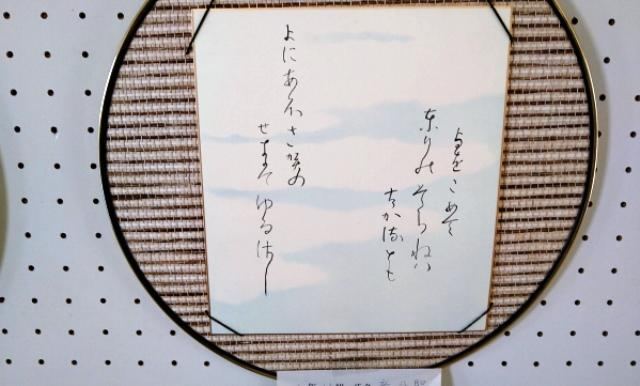 よをこめて
とりのそらねは
はかるとも
よにあふさかの
せきはゆるさし